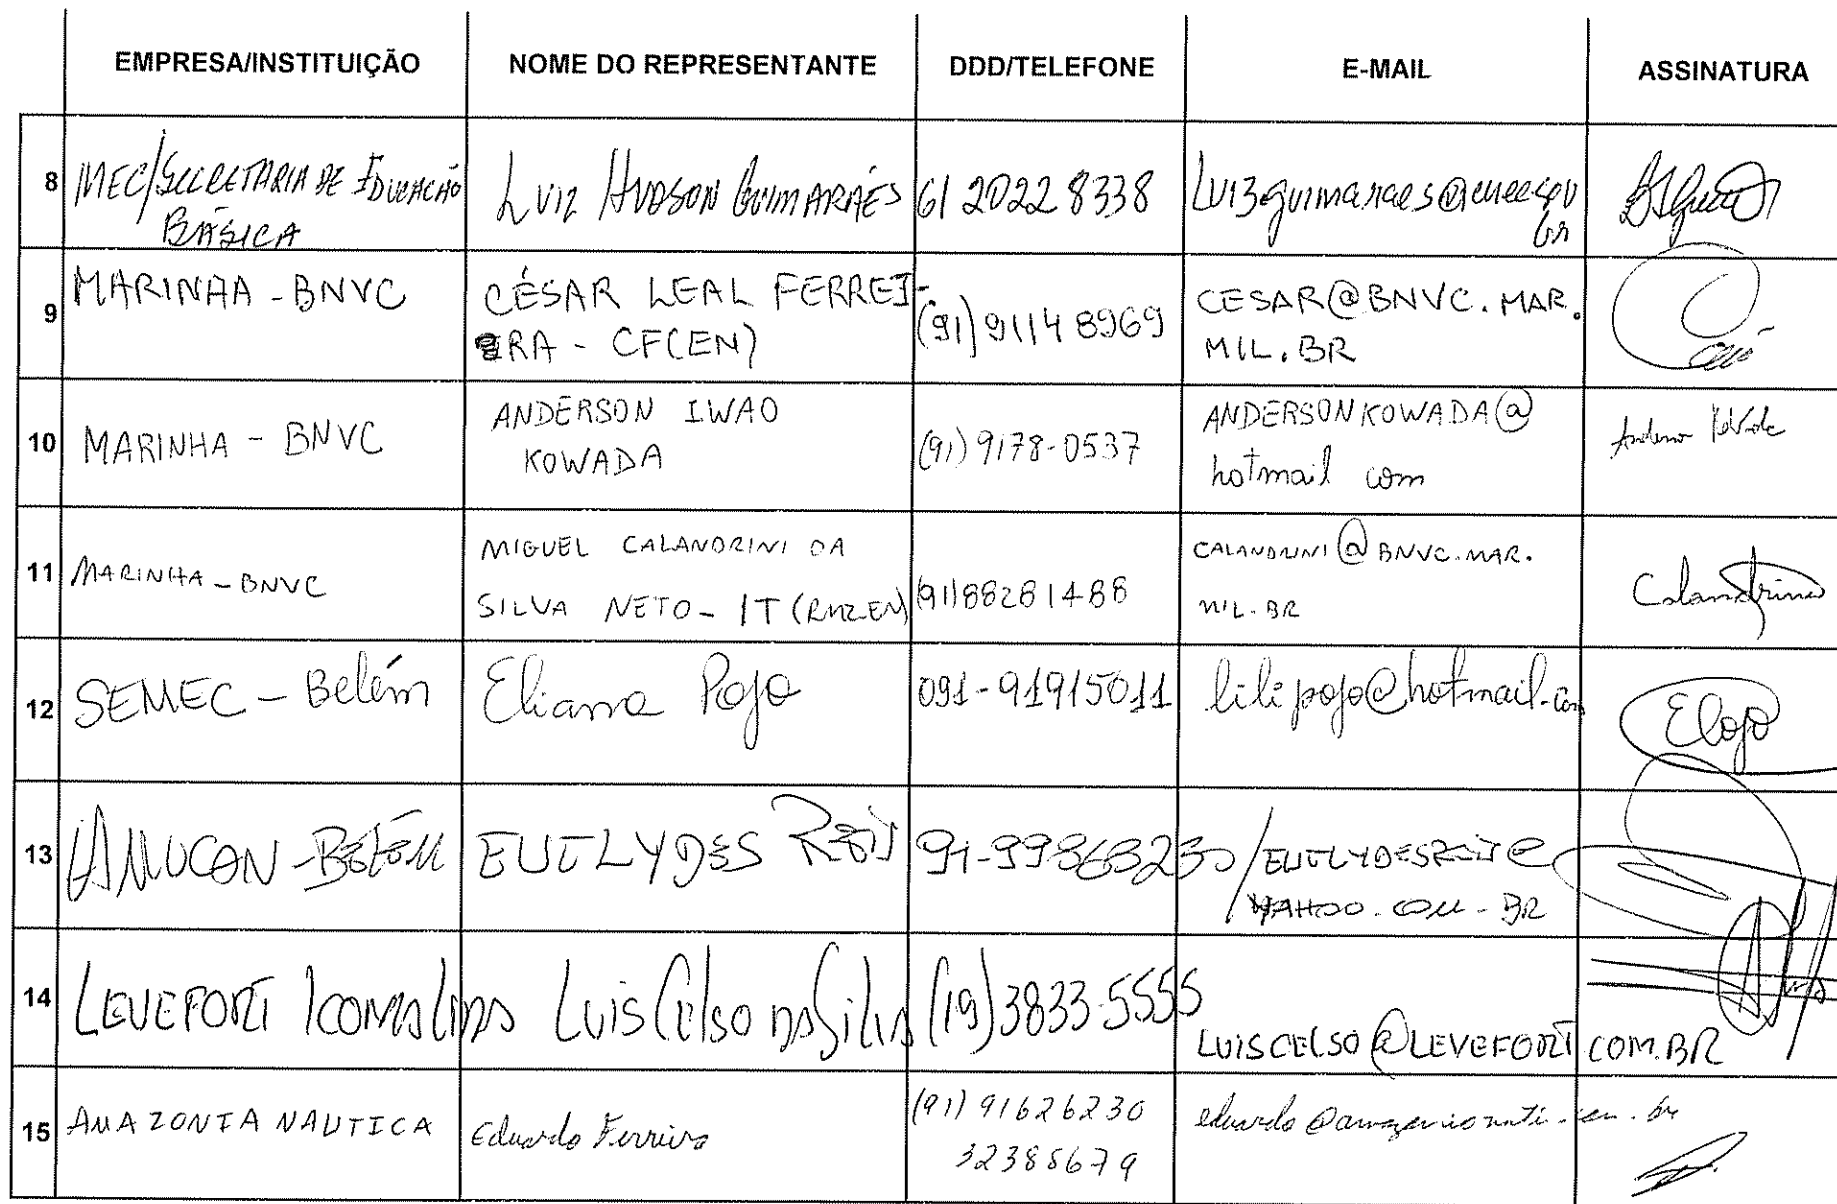 EMPRESA/INSTITUIÇÃO NOME DO REPRESENTANTE DDD/TELEFONE E-MAIL ASSINATURA
8 MEC/SECRETARIA DE EDUCAÇÃO
BÁSICA
LUIZ HUDSON GUIMARÃES
61 2022 8338
9 MARINHA - BNVC
CÉSAR LEAL FERREI-
RA - CF(EN)
(91) 9114 8969
CESAR@BNVC.MAR.
MIL.BR
10 MARINHA - BNVC
ANDERSON IWAO
KOWADA
(91) 9178-0537
ANDERSONKOWADA@
hotmail com
11 MARINHA - BNVC
MIGUEL CALANDRINI DA
SILVA NETO - 1T
(91)88281488
CALANDRINI@BNVC.MAR.
MIL.BR
Calandrini
12 SEMEC - Belém
Eliana Pojo
091-91915011
lilipojo@hotmail.com
EPojo
13
BELÉM
REIS
YAHOO.COM.BR
14 LEVEFORT
LUIS CELSO DA SILVA
(19) 3833-5555
LUISCELSO@LEVEFORT COM.BR
15 AMAZONIA NAUTICA
Eduardo Ferreira
(91) 91626230
32385679